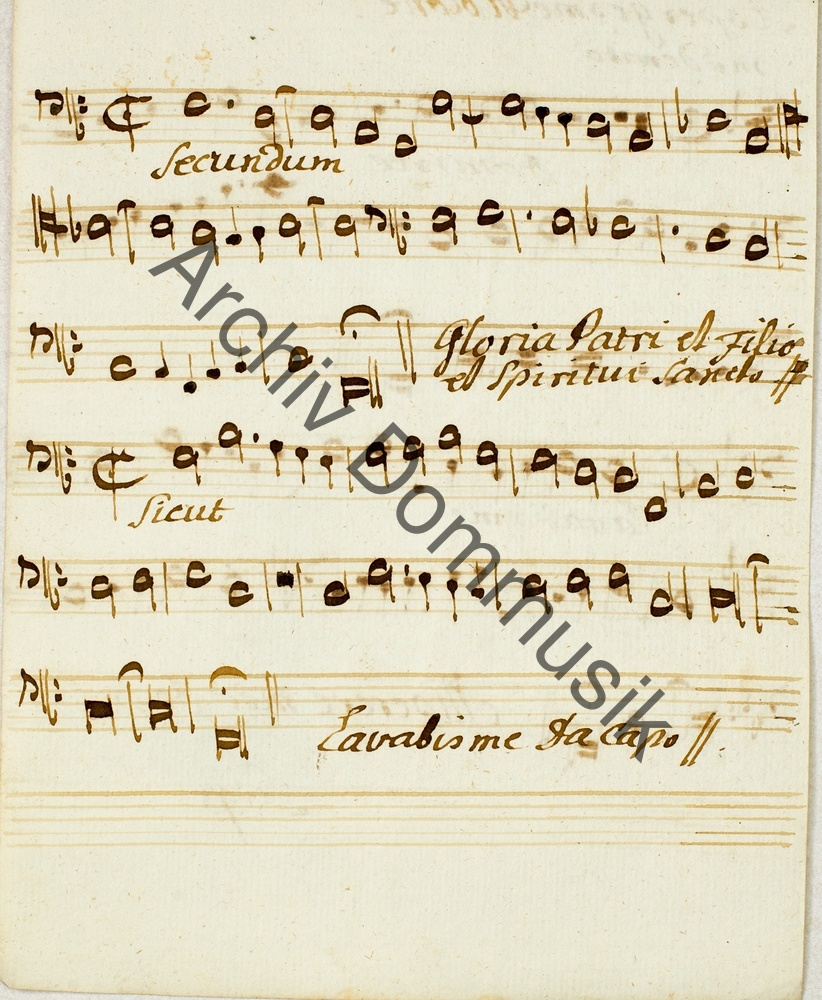 Secundum
Gloria Patri et Filio
et Spiritui Sancto //
Sicut
Lavabis me Da Capo //.
Archiv Dommusik